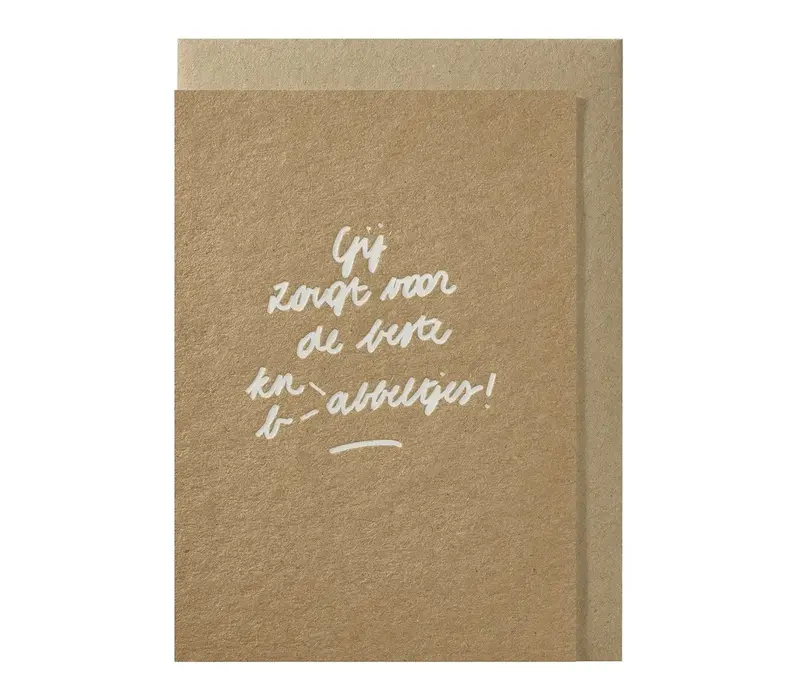 Gij
zorgt voor
de beste
kn
b - abbeltjes!